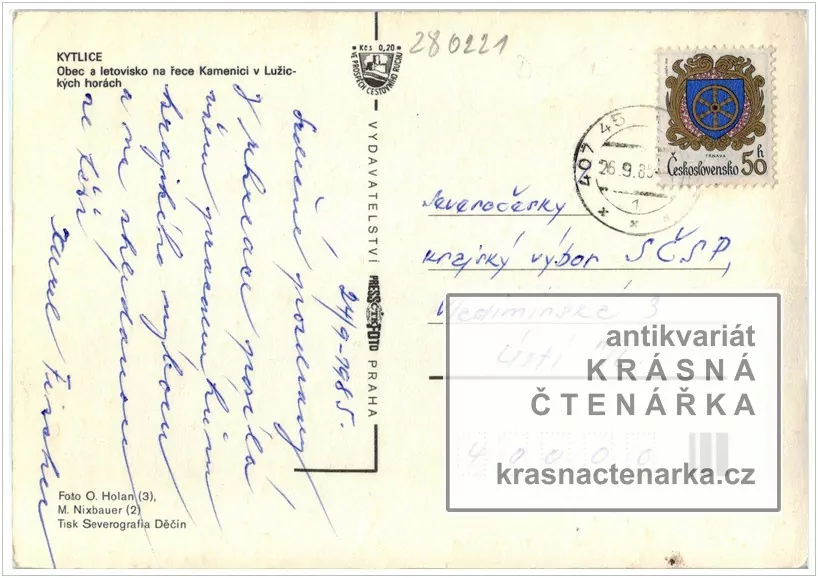 KYTLICE
Obec a letovisko na řece Kamenici v Lužic-
kých horách
• Kčs 0,20 •
VE PROSPĚCH CESTOVNÍHO RUCHU
280221
TRNAVA
Československo 50 h
407 45
26.9.85
1
24/9-1985.
Srdečné pozdravy
z rekreace posílá
všem pracovníkům
krajského výboru
a na shledanou
se těší
Karel Fischer
VYDAVATELSTVÍ PRESSFOTO PRAHA
ČTK
Severočeský
krajský výbor SČSP,
3
Ústí
40000
Foto O. Holan (3),
M. Nixbauer (2)
Tisk Severografia Děčín
antikvariát
KRÁSNÁ
ČTENÁŘKA
krasnactenarka.cz